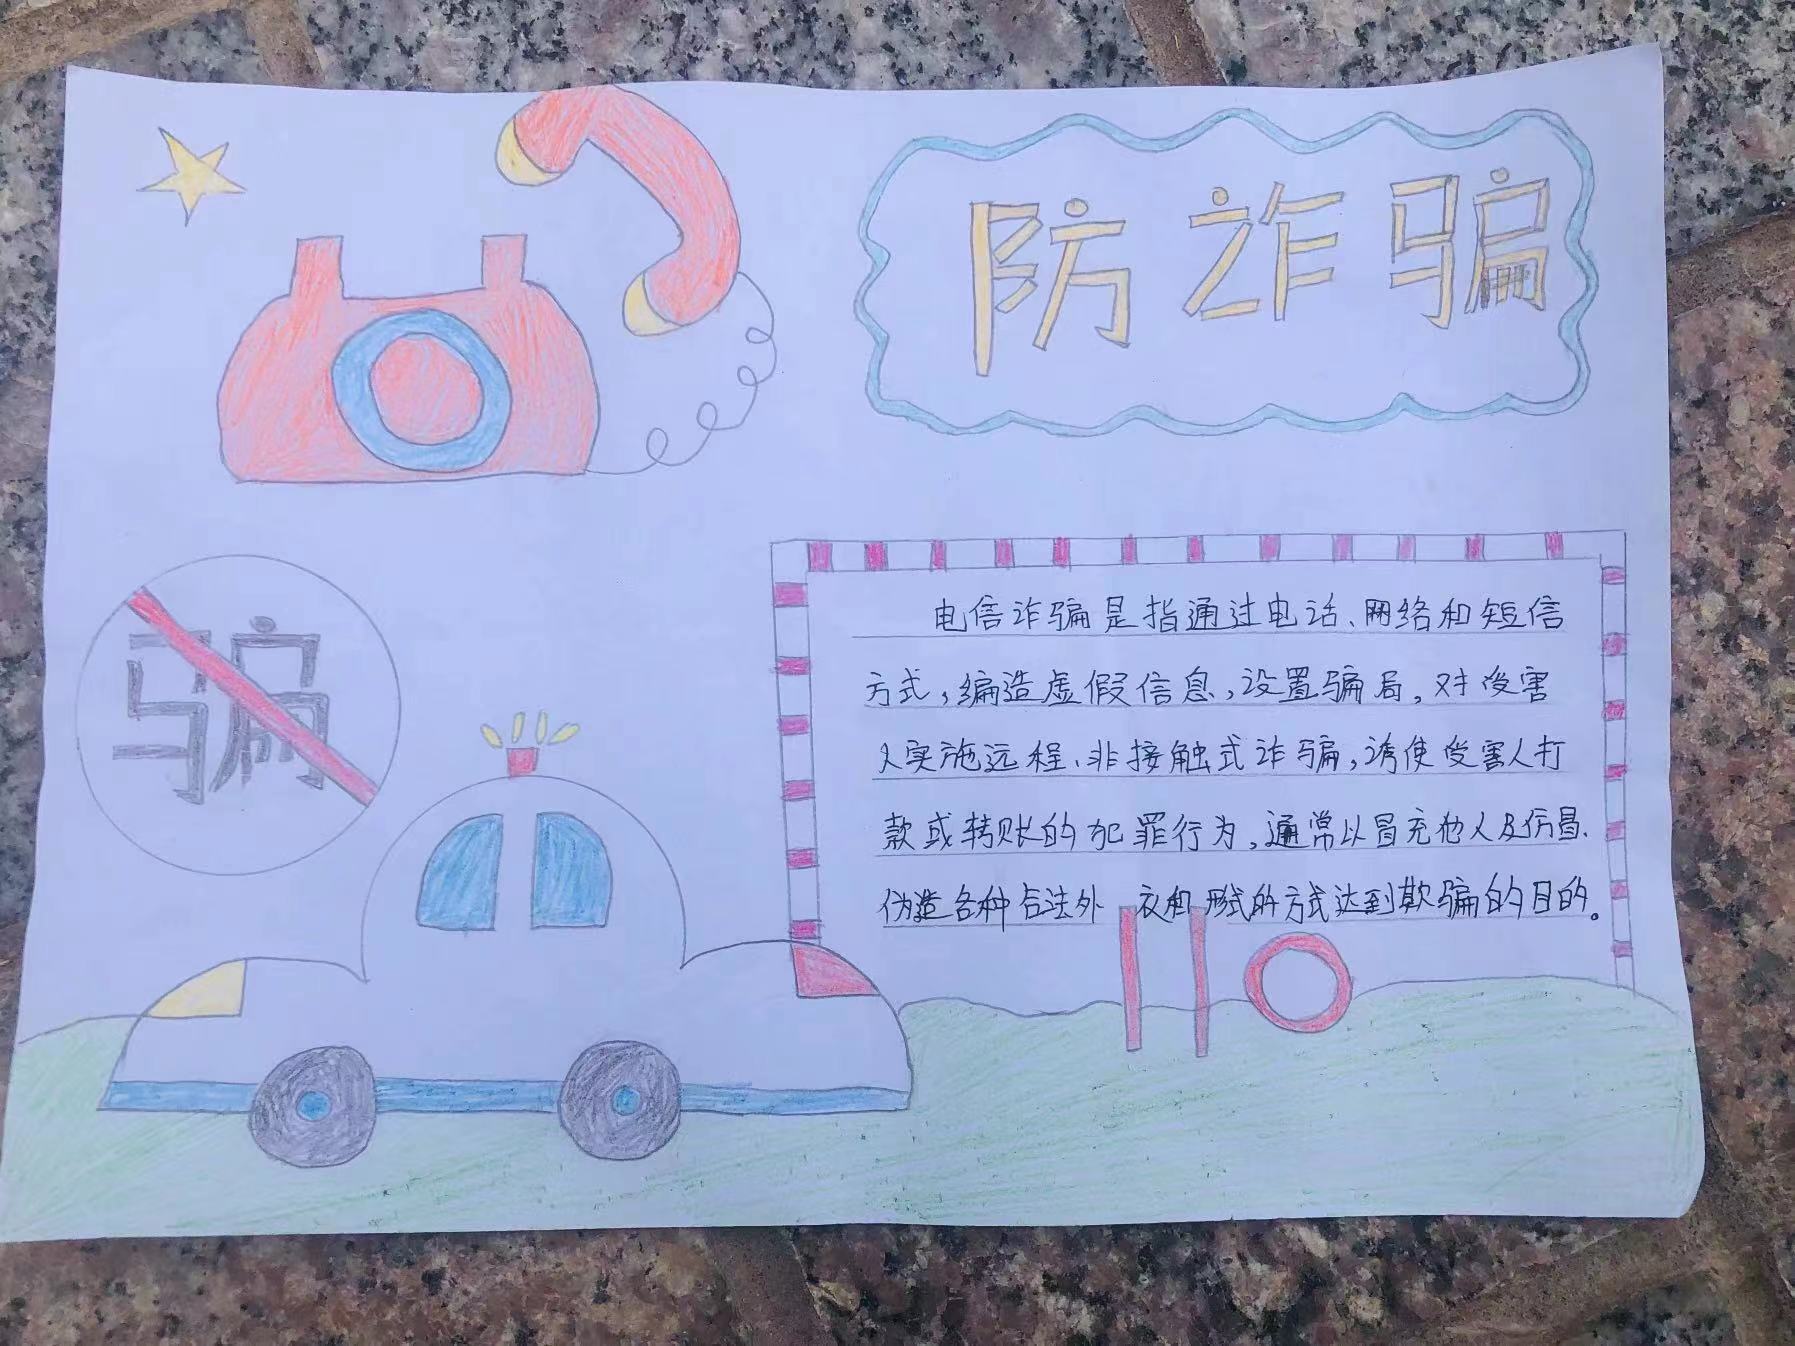 防诈骗
骗
电信诈骗是指通过电话、网络和短信
方式，编造虚假信息，设置骗局，对受害
人实施远程、非接触式诈骗，诱使受害人打
款或转账的犯罪行为，通常以冒充他人及仿冒、
伪造各种合法外衣和形式的方式达到欺骗的目的。
110